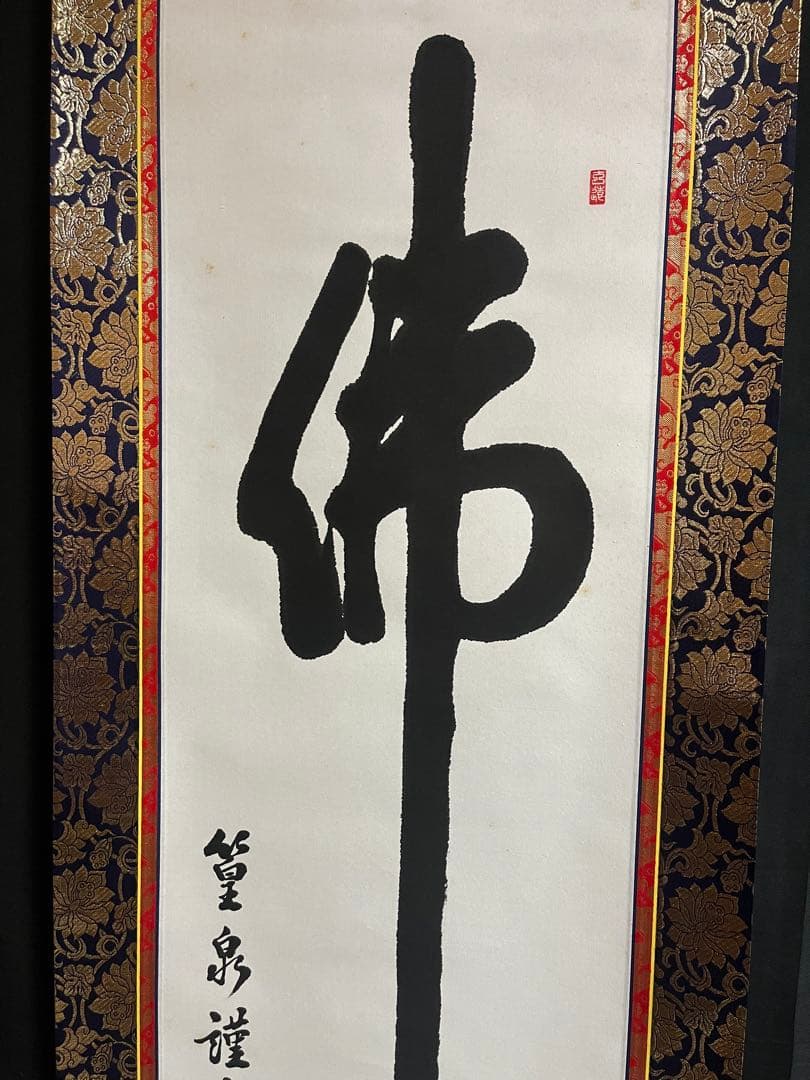 佛
篁泉謹